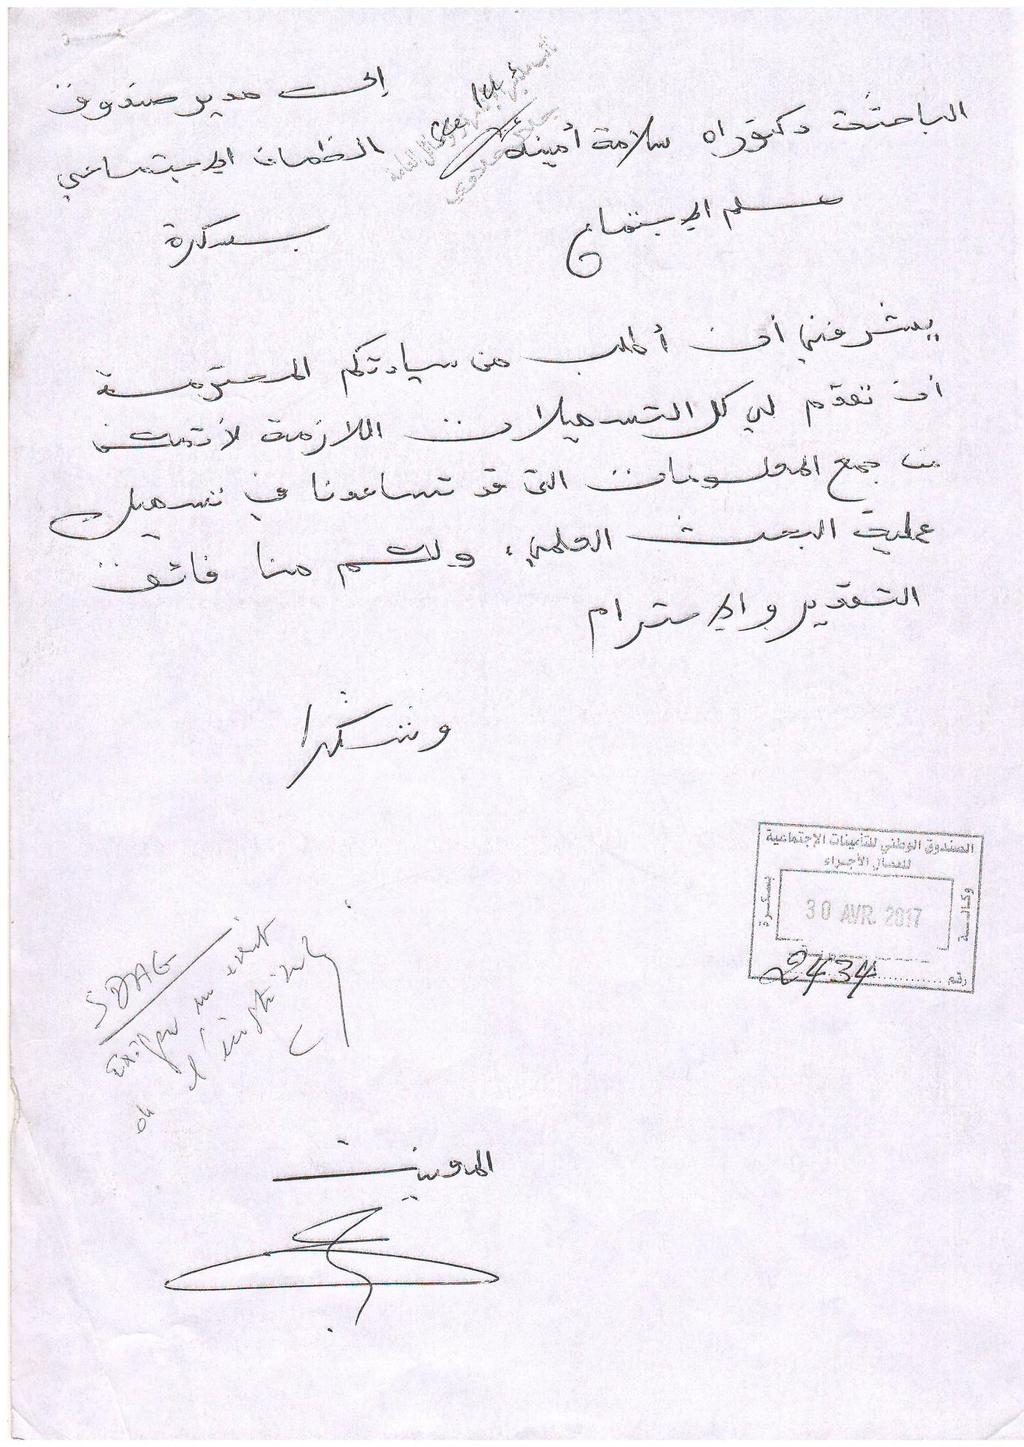 الباحثة دكتوراه سلامة أمينة
علم الإجتماع
إلى مدير صندوق
الظمان الإجتماعي
بسكرة
يشرفني أن أطلب من سيادتكم المحترمة
أن تقدم لي كل التسهيلات اللازمة لأتمكن
من جمع المعلومات التي قد تساعدنا في تسهيل
عملية البحث العلمي، ولكم منا فائق
التقدير والإحترام
وشكرا
الصندوق الوطني للتأمينات الإجتماعية
للعمال الأجراء
وكالة
بسكرة
30 AVR. 2017
رقم 2434
SDAG
Exiger un écrit
de l'institut